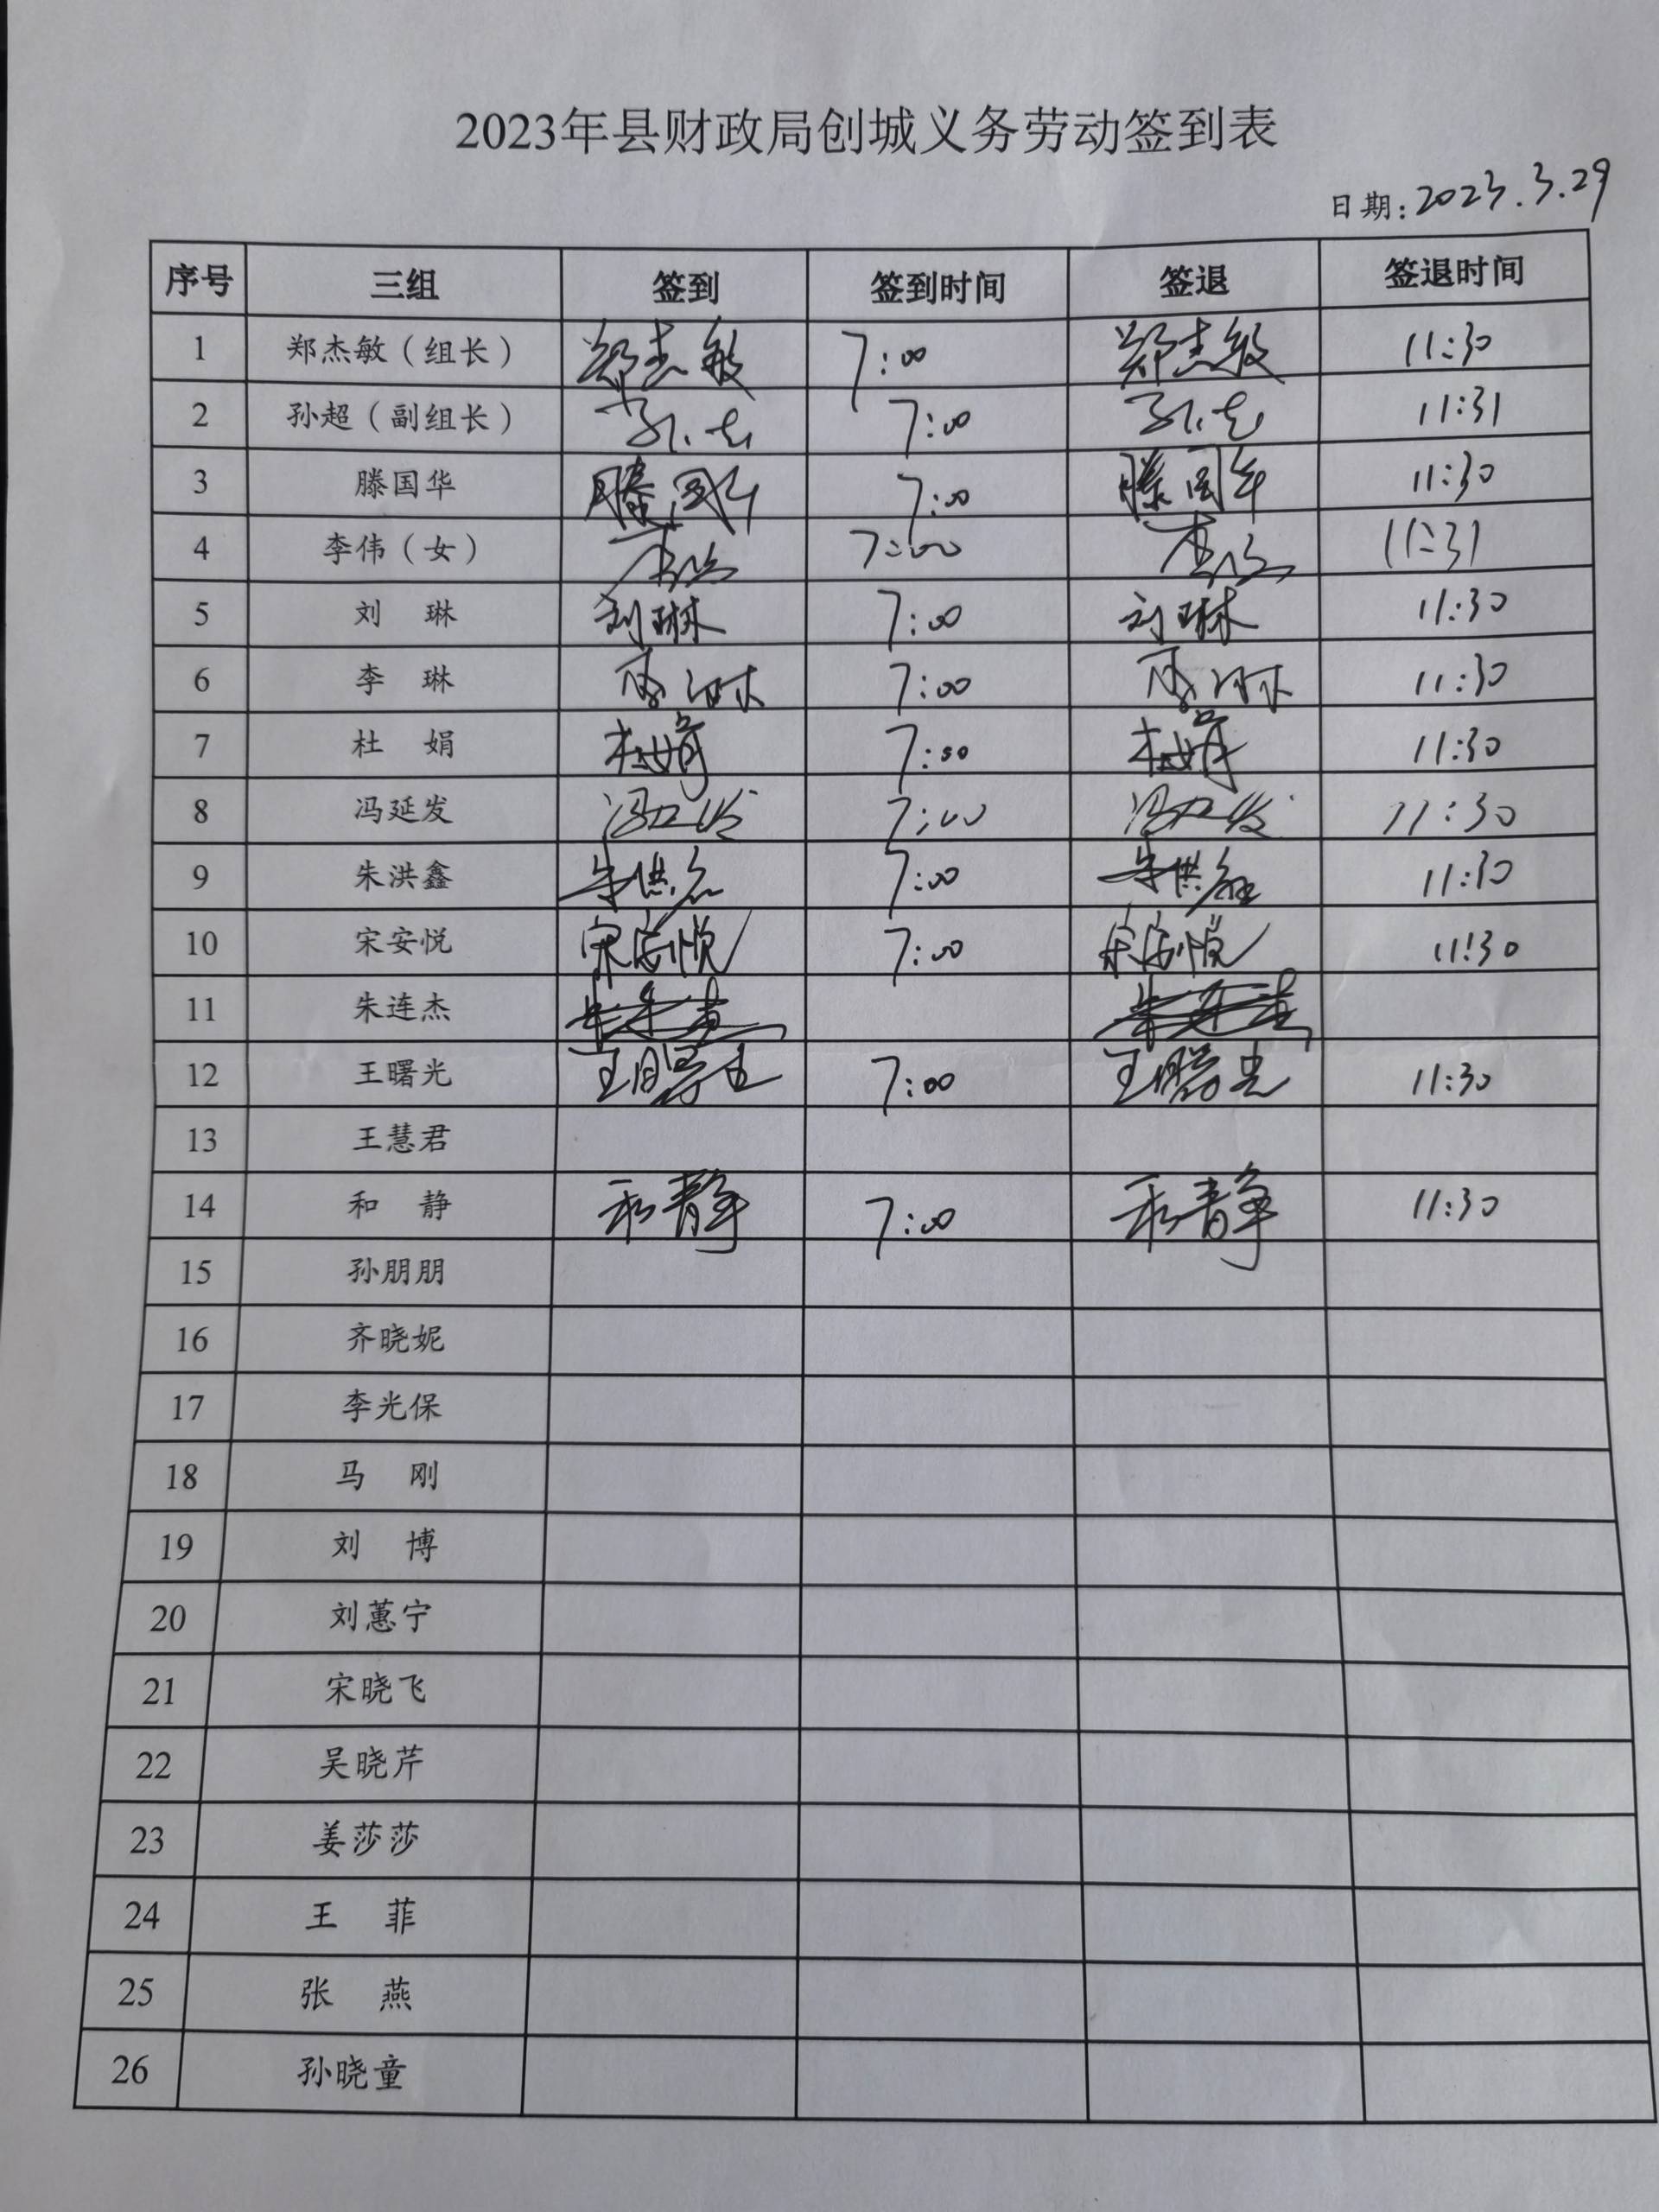 2023年县财政局创城义务劳动签到表
日期: 2023.3.29
序号 三组 签到 签到时间 签退 签退时间
1 郑杰敏（组长） 郑杰敏 7:00 郑杰敏 11:30
2 孙超（副组长） 孙超 7:00 孙超 11:31
3 滕国华 滕国华 7:00 滕国华 11:30
4 李伟（女） 李伟 7:00 李伟 11:31
5 刘 琳 刘琳 7:00 刘琳 11:30
6 李 琳 李琳 7:00 李琳 11:30
7 杜 娟 杜娟 7:00 杜娟 11:30
8 冯延发 冯延发 7:00 冯延发 11:30
9 朱洪鑫 朱洪鑫 7:00 朱洪鑫 11:30
10 宋安悦 宋安悦 7:00 宋安悦 11:30
11 朱连杰 朱连杰 朱连杰
12 王曙光 王曙光 7:00 王曙光 11:30
13 王慧君
14 和 静 和静 7:00 和静 11:30
15 孙朋朋
16 齐晓妮
17 李光保
18 马 刚
19 刘 博
20 刘蕙宁
21 宋晓飞
22 吴晓芹
23 姜莎莎
24 王 菲
25 张 燕
26 孙晓童